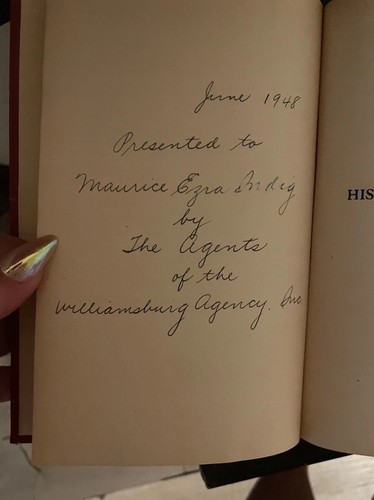 June 1948
Presented to
Maurice Ezra Indig
by
The Agents
of the
Williamsburg Agency. Inc
HIS